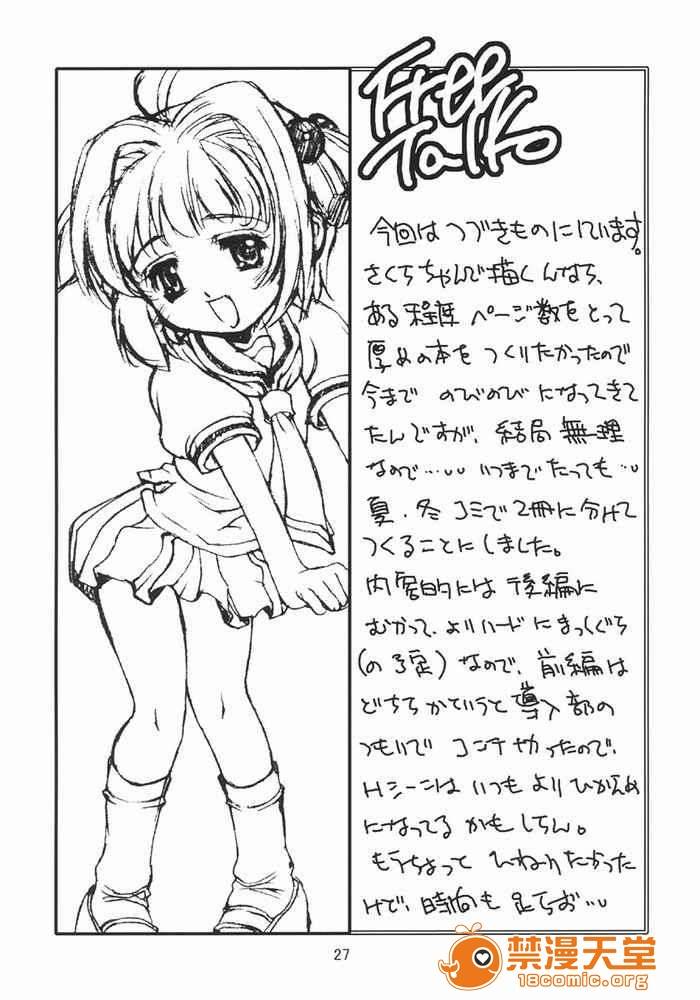 Free
Talk
今回はつづきものにしています。
さくらちゃんで描くんなら、
ある程度ページ数をとって
厚めの本をつくりたかったので
今までのびのびになってきて
たんですが、結局無理
なので…いつまでたっても…
夏・冬コミで2冊に分けて
つくることにしました。
内容的には後編に
むかって、よりハードにまっしぐら
(の予定)なので、前編は
どちらかというと導入部の
つもりでコンテやったので、
Hシーンはいつもよりひかえめ
になってるかもしらん。
もうちょっとひねりたかった
けど、時間も足らお…
27
禁漫天堂
18comic.org